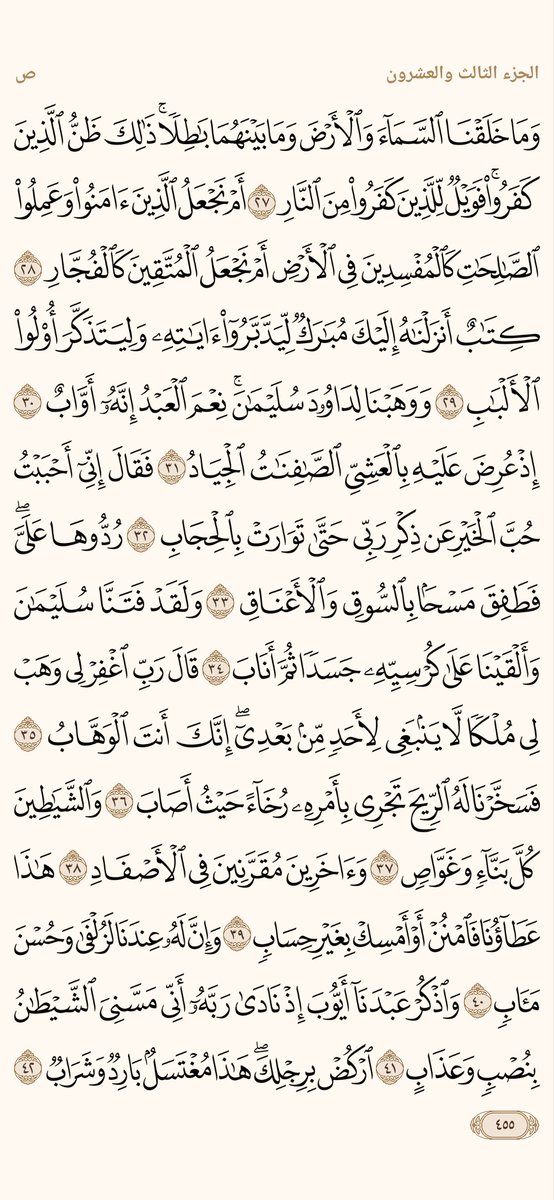 الجزء الثالث والعشرون
ص
وَمَا خَلَقْنَا ٱلسَّمَآءَ وَٱلْأَرْضَ وَمَا بَيْنَهُمَا بَٰطِلًا ۚ ذَٰلِكَ ظَنُّ ٱلَّذِينَ
كَفَرُوا۟ ۚ فَوَيْلٌ لِّلَّذِينَ كَفَرُوا۟ مِنَ ٱلنَّارِ ٢٧ أَمْ نَجْعَلُ ٱلَّذِينَ ءَامَنُوا۟ وَعَمِلُوا۟
ٱلصَّٰلِحَٰتِ كَٱلْمُفْسِدِينَ فِى ٱلْأَرْضِ أَمْ نَجْعَلُ ٱلْمُتَّقِينَ كَٱلْفُجَّارِ ٢٨
كِتَٰبٌ أَنزَلْنَٰهُ إِلَيْكَ مُبَٰرَكٌ لِّيَدَّبَّرُوٓا۟ ءَايَٰتِهِۦ وَلِيَتَذَكَّرَ أُو۟لُوا۟
ٱلْأَلْبَٰبِ ٢٩ وَوَهَبْنَا لِدَاوُۥدَ سُلَيْمَٰنَ ۚ نِعْمَ ٱلْعَبْدُ إِنَّهُۥٓ أَوَّابٌ ٣٠
إِذْ عُرِضَ عَلَيْهِ بِٱلْعَشِىِّ ٱلصَّٰفِنَٰتُ ٱلْجِيَادُ ٣١ فَقَالَ إِنِّىٓ أَحْبَبْتُ
حُبَّ ٱلْخَيْرِ عَن ذِكْرِ رَبِّى حَتَّىٰ تَوَارَتْ بِٱلْحِجَابِ ٣٢ رُدُّوهَا عَلَىَّ ۖ
فَطَفِقَ مَسْحًۢا بِٱلسُّوقِ وَٱلْأَعْنَاقِ ٣٣ وَلَقَدْ فَتَنَّا سُلَيْمَٰنَ
وَأَلْقَيْنَا عَلَىٰ كُرْسِيِّهِۦ جَسَدًا ثُمَّ أَنَابَ ٣٤ قَالَ رَبِّ ٱغْفِرْ لِى وَهَبْ
لِى مُلْكًا لَّا يَنۢبَغِى لِأَحَدٍ مِّنۢ بَعْدِىٓ ۖ إِنَّكَ أَنتَ ٱلْوَهَّابُ ٣٥
فَسَخَّرْنَا لَهُ ٱلرِّيحَ تَجْرِى بِأَمْرِهِۦ رُخَآءً حَيْثُ أَصَابَ ٣٦ وَٱلشَّيَٰطِينَ
كُلَّ بَنَّآءٍ وَغَوَّاصٍ ٣٧ وَءَاخَرِينَ مُقَرَّنِينَ فِى ٱلْأَصْفَادِ ٣٨ هَٰذَا
عَطَآؤُنَا فَٱمْنُنْ أَوْ أَمْسِكْ بِغَيْرِ حِسَابٍ ٣٩ وَإِنَّ لَهُۥ عِندَنَا لَزُلْفَىٰ وَحُسْنَ
مَـَٔابٍ ٤٠ وَٱذْكُرْ عَبْدَنَآ أَيُّوبَ إِذْ نَادَىٰ رَبَّهُۥٓ أَنِّى مَسَّنِىَ ٱلشَّيْطَٰنُ
بِنُصْبٍ وَعَذَابٍ ٤١ ٱرْكُضْ بِرِجْلِكَ ۖ هَٰذَا مُغْتَسَلٌۢ بَارِدٌ وَشَرَابٌ ٤٢
٤٥٥